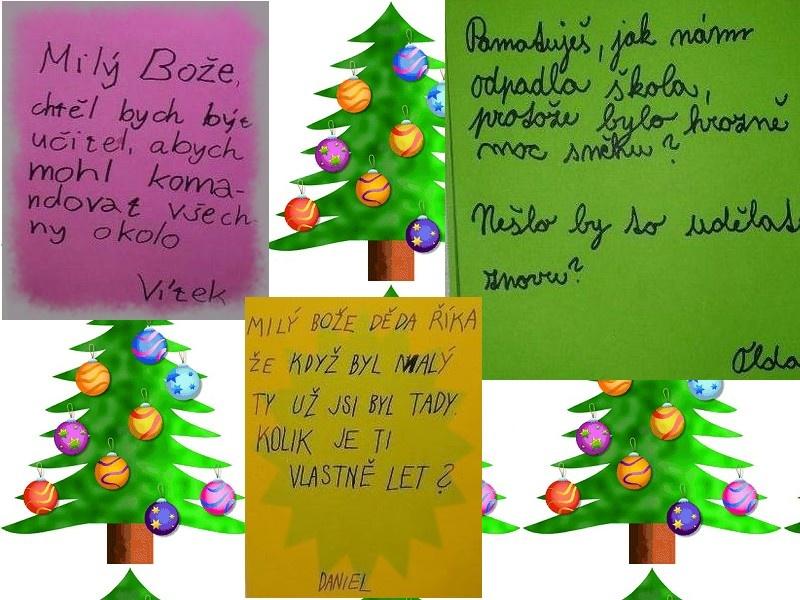 Milý Bože,
chtěl bych být
učitel, abych
mohl koma-
ndovat všech-
ny okolo
Vítek
Pamatuješ, jak nám
odpadla škola,
protože bylo hrozně
moc sněhu?
Nešlo by to udělat
znovu?
Olda
MILÝ BOŽE DĚDA ŘÍKA
ŽE KDYŽ BYL MALÝ
TY UŽ JSI BYL TADY.
KOLIK JE TI
VLASTNĚ LET?
DANIEL